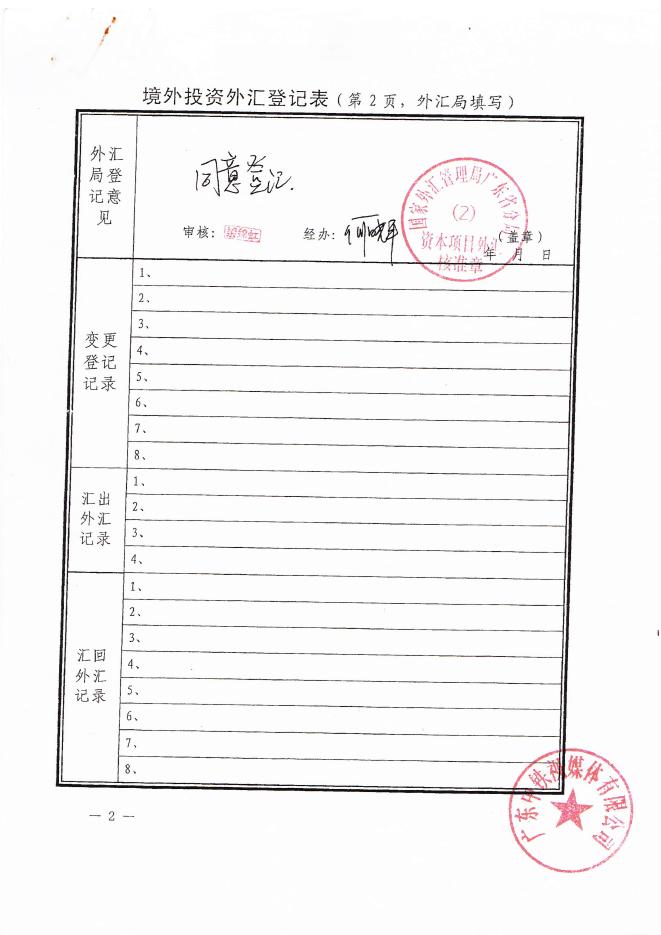 境外投资外汇登记表（第2页，外汇局填写）
外汇
局登
记意
见
同意登记.
审核：
经办：
（盖章）
年 月 日
国家外汇管理局广东省分局
(2)
资本项目外汇
核准章
变更
登记
记录
1、
2、
3、
4、
5、
6、
7、
8、
汇出
外汇
记录
1、
2、
3、
4、
汇回
外汇
记录
1、
2、
3、
4、
5、
6、
7、
8、
— 2 —
广东中铁视媒体有限公司